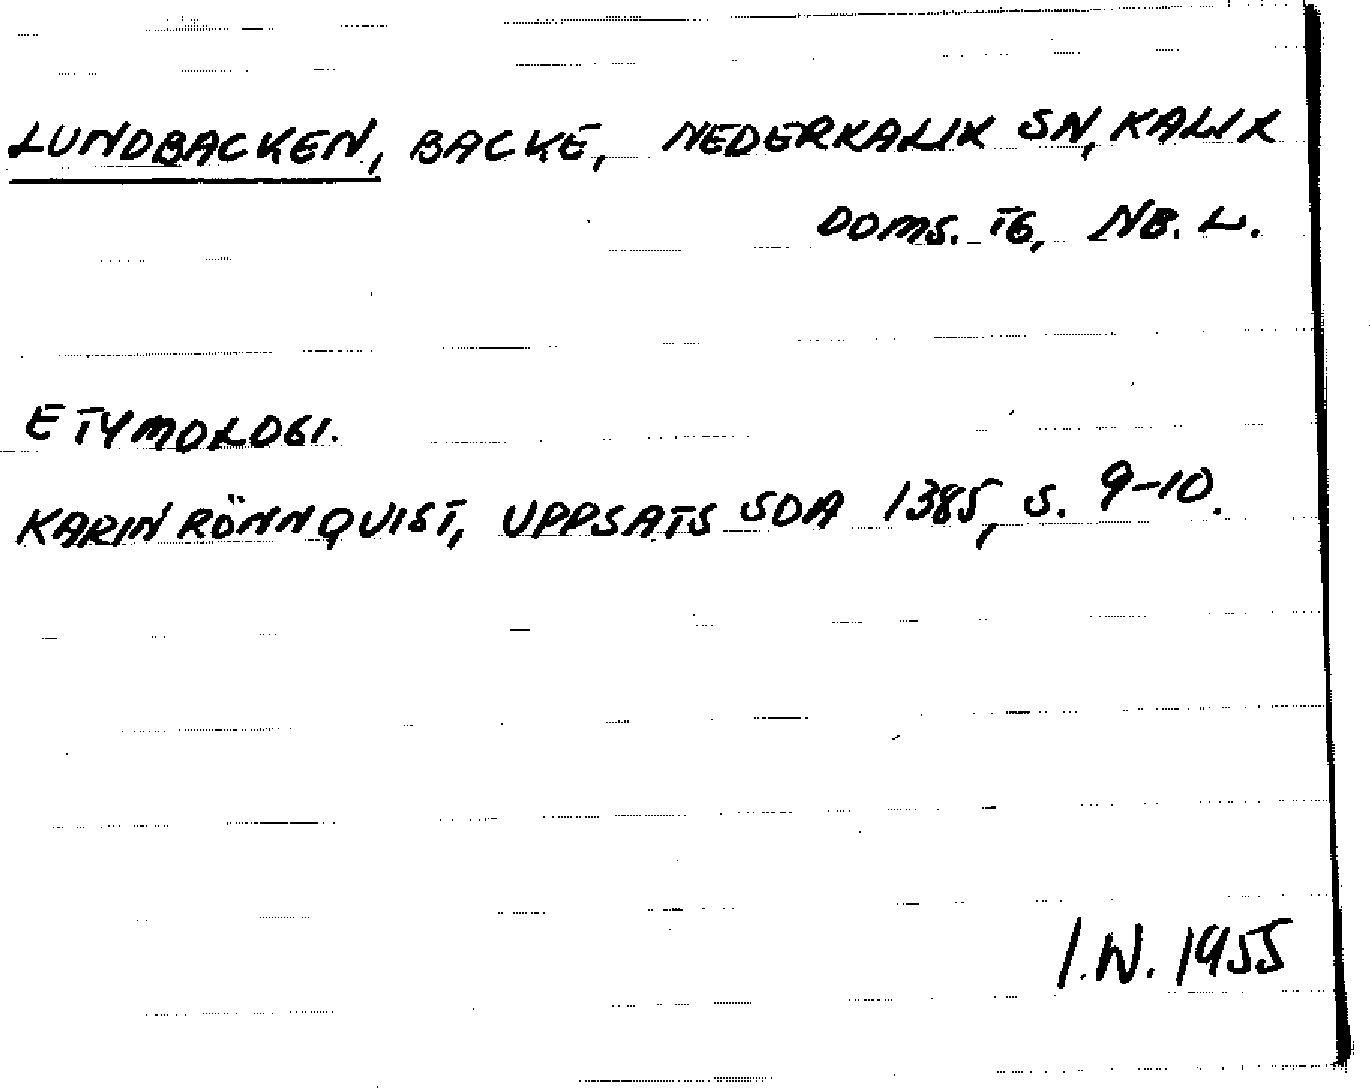 LUNDBACKEN, BACKE, NEDERKALIX SN, KALIX
DOMS. TG, NB. L.
ETYMOLOGI.
KARIN RÖNNQUIST, UPPSATS SOA 1385, S. 9-10.
I.N. 1955